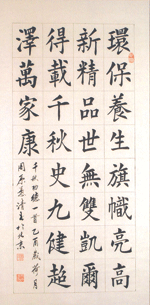 環保養生旗幟亮高
新精品世無雙凱爾
得載千秋史九健超
澤萬家康
千秋 一首乙酉歲荷月
周原 於北京